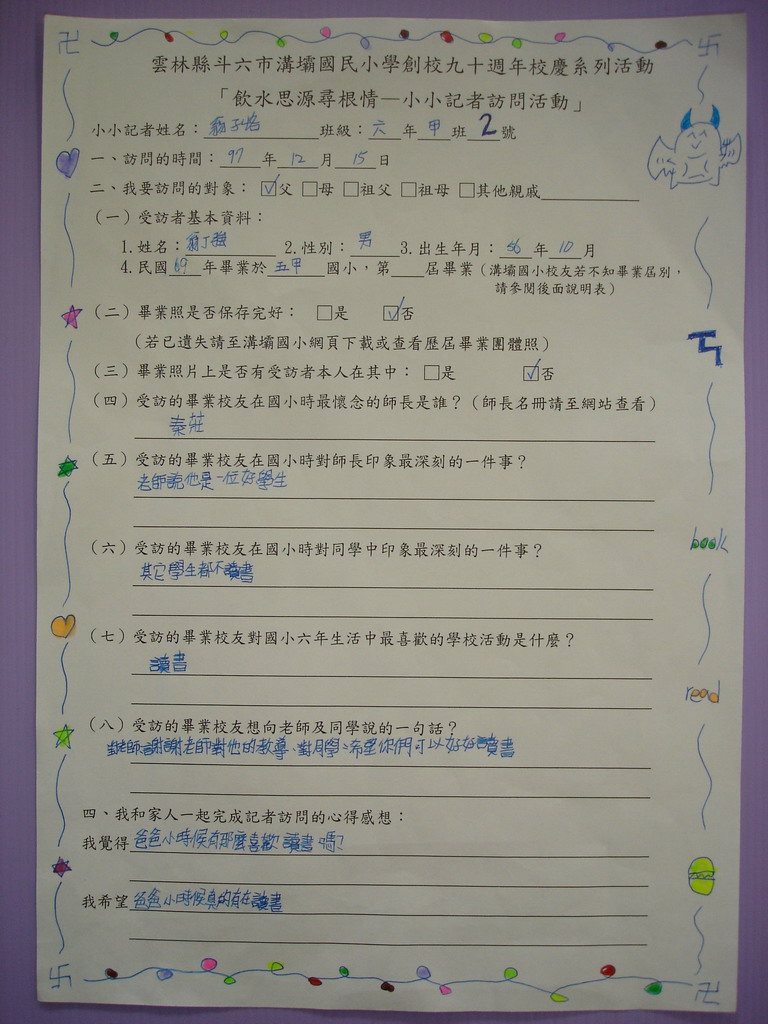 雲林縣斗六市溝壩國民小學創校九十週年校慶系列活動
「飲水思源尋根情—小小記者訪問活動」
小小記者姓名： 班級：六年甲班2號
一、訪問的時間：97年12月15日
二、我要訪問的對象：☑父 □母 □祖父 □祖母 □其他親戚
（一）受訪者基本資料：
1.姓名： 2.性別：男 3.出生年月：56年10月
4.民國69年畢業於五甲國小，第 屆畢業（溝壩國小校友若不知畢業屆別，
請參閱後面說明表）
（二）畢業照是否保存完好： □是 ☑否
（若已遺失請至溝壩國小網頁下載或查看歷屆畢業團體照）
（三）畢業照片上是否有受訪者本人在其中：□是 ☑否
（四）受訪的畢業校友在國小時最懷念的師長是誰？（師長名冊請至網站查看）
秦莊
（五）受訪的畢業校友在國小時對師長印象最深刻的一件事？
老師說他是一位好學生
（六）受訪的畢業校友在國小時對同學中印象最深刻的一件事？
book
其它學生都不讀書
（七）受訪的畢業校友對國小六年生活中最喜歡的學校活動是什麼？
讀書
read
（八）受訪的畢業校友想向老師及同學說的一句話？
對老師:謝謝老師對他的教導、對同學:希望你們可以好好讀書
四、我和家人一起完成記者訪問的心得感想：
我覺得爸爸小時候有那麼喜歡讀書嗎?
我希望爸爸小時候真的有在讀書